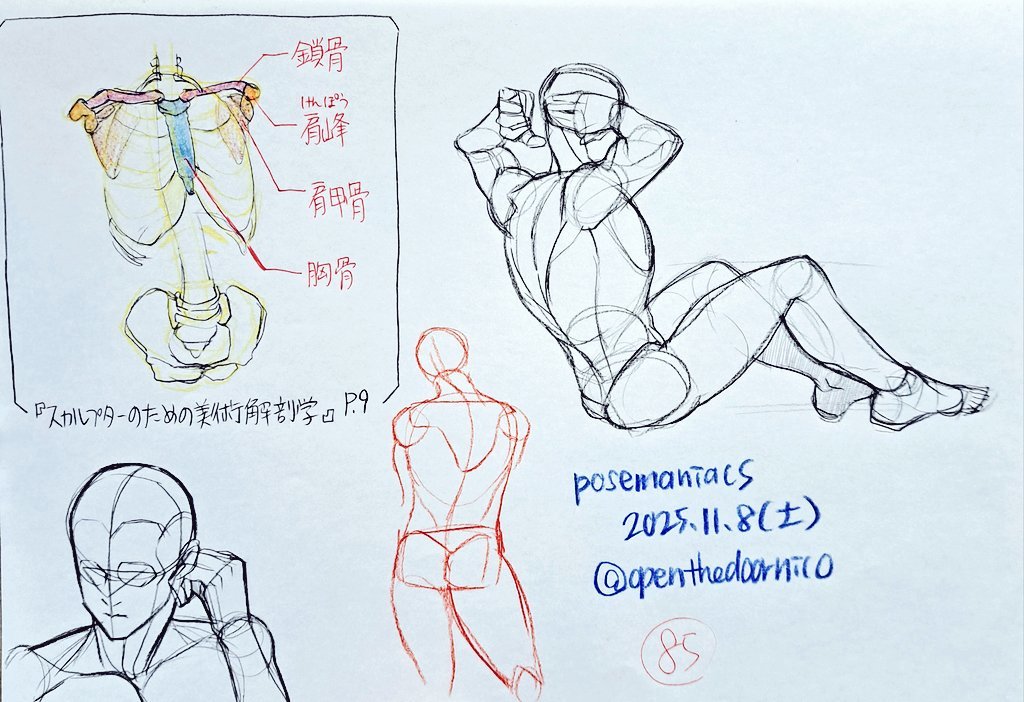 鎖骨
けんぽう
肩峰
肩甲骨
胸骨
『スカルプターのための美術解剖学』 P.9
posemaniacs
2025.11.8(土)
@openthedoornico
85